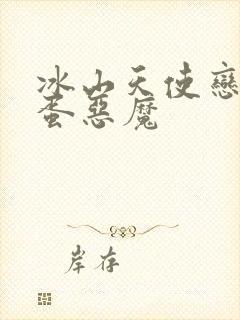 冰山天使戀
蛋惡魔
岸存